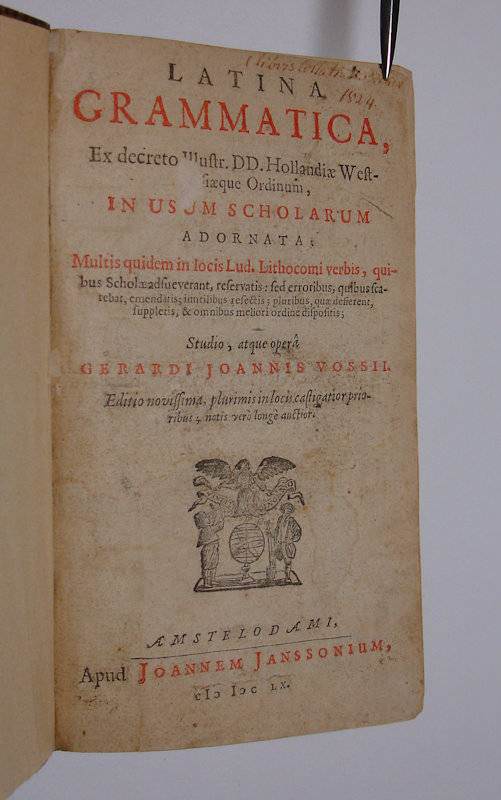 LATINA
1824.
GRAMMATICA,
Ex decreto Illustr. DD. Hollandiæ West-
siæque Ordinum,
IN USUM SCHOLARUM
ADORNATA:
Multis quidem in locis Lud. Lithocomi verbis, qui-
bus Scholæ adsueverant, reservatis: sed erroribus, quibus sca-
tebat, emendatis; inutilibus resectis; pluribus, quæ desierent,
suppletis, & omnibus meliori ordine dispositis;
Studio, atque operâ
GERARDI JOANNIS VOSSII.
Editio novissima, plurimis in locis castigatior prio-
ribus, notis verò longè auctior.
AMSTELODAMI,
Apud JOANNEM JANSSONIUM,
cIↃ IↃc LX.